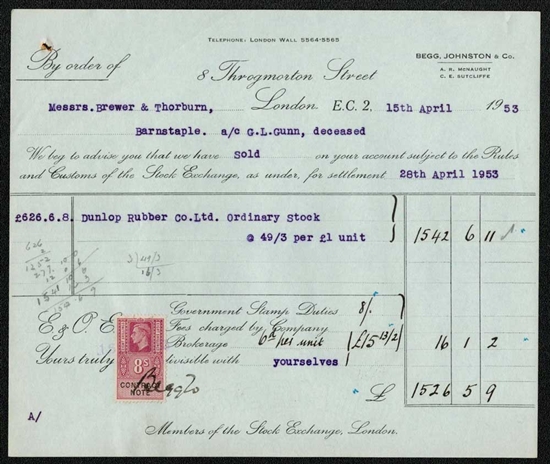 TELEPHONE: LONDON WALL 5564-5565
BEGG, JOHNSTON & Co.
A. R. McNAUGHT
C. E. SUTCLIFFE
By order of
8 Throgmorton Street
Messrs. Brewer & Thorburn,
London. E.C. 2. 15th April 1953
Barnstaple. a/c G.L.Gunn, deceased
We beg to advise you that we have Sold on your account subject to the Rules
and Customs of the Stock Exchange, as under, for settlement 28th April 1953
£626.6.8. Dunlop Rubber Co.Ltd. Ordinary Stock
@ 49/3 per £1 unit 1542 6 11
626
2
1252
3 49/3
16/3
E. & O. E. Government Stamp Duties 8/.
Fees charged by Company
Brokerage 6d per unit £15 13/2 16 1 2
Yours truly divisible with yourselves
8S
CONTRACT
NOTE
£ 1526 5 9
A/
Members of the Stock Exchange, London.